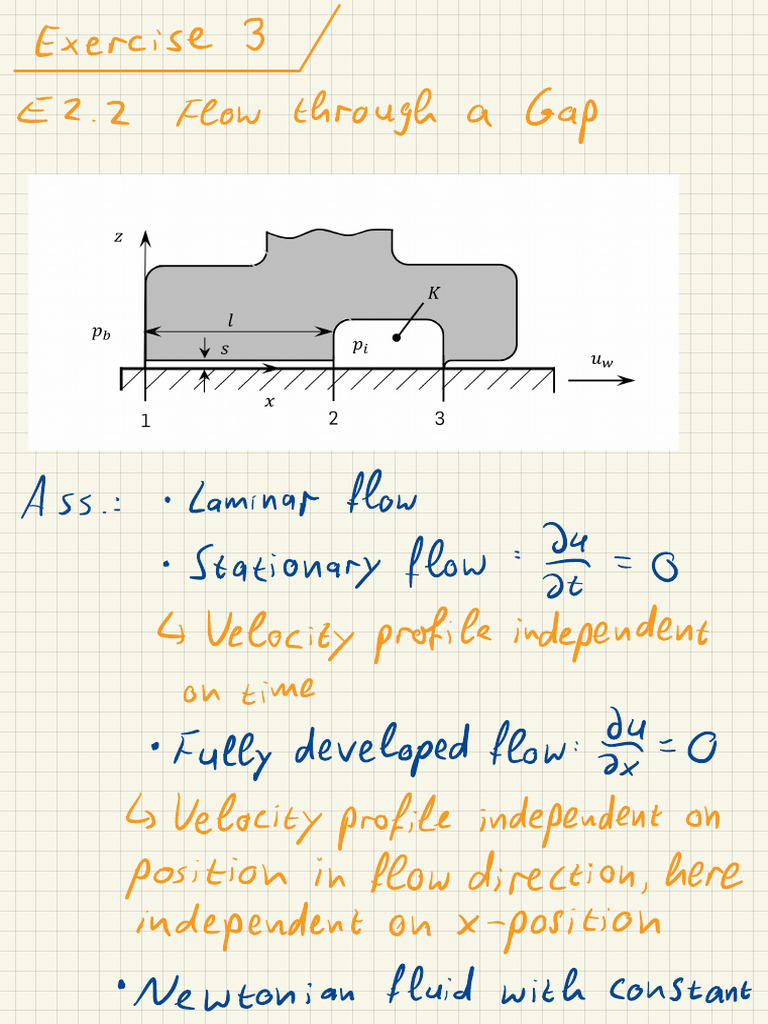 Exercise 3
E2.2 Flow through a Gap
z
K
p_b
l
s
p_i
u_w
x
1
2
3
Ass.: • Laminar flow
• Stationary flow : ∂u/∂t = 0
↳ Velocity profile independent
on time
• Fully developed flow: ∂u/∂x = 0
↳ Velocity profile independent on
position in flow direction, here
independent on x-position
• Newtonian fluid with constant